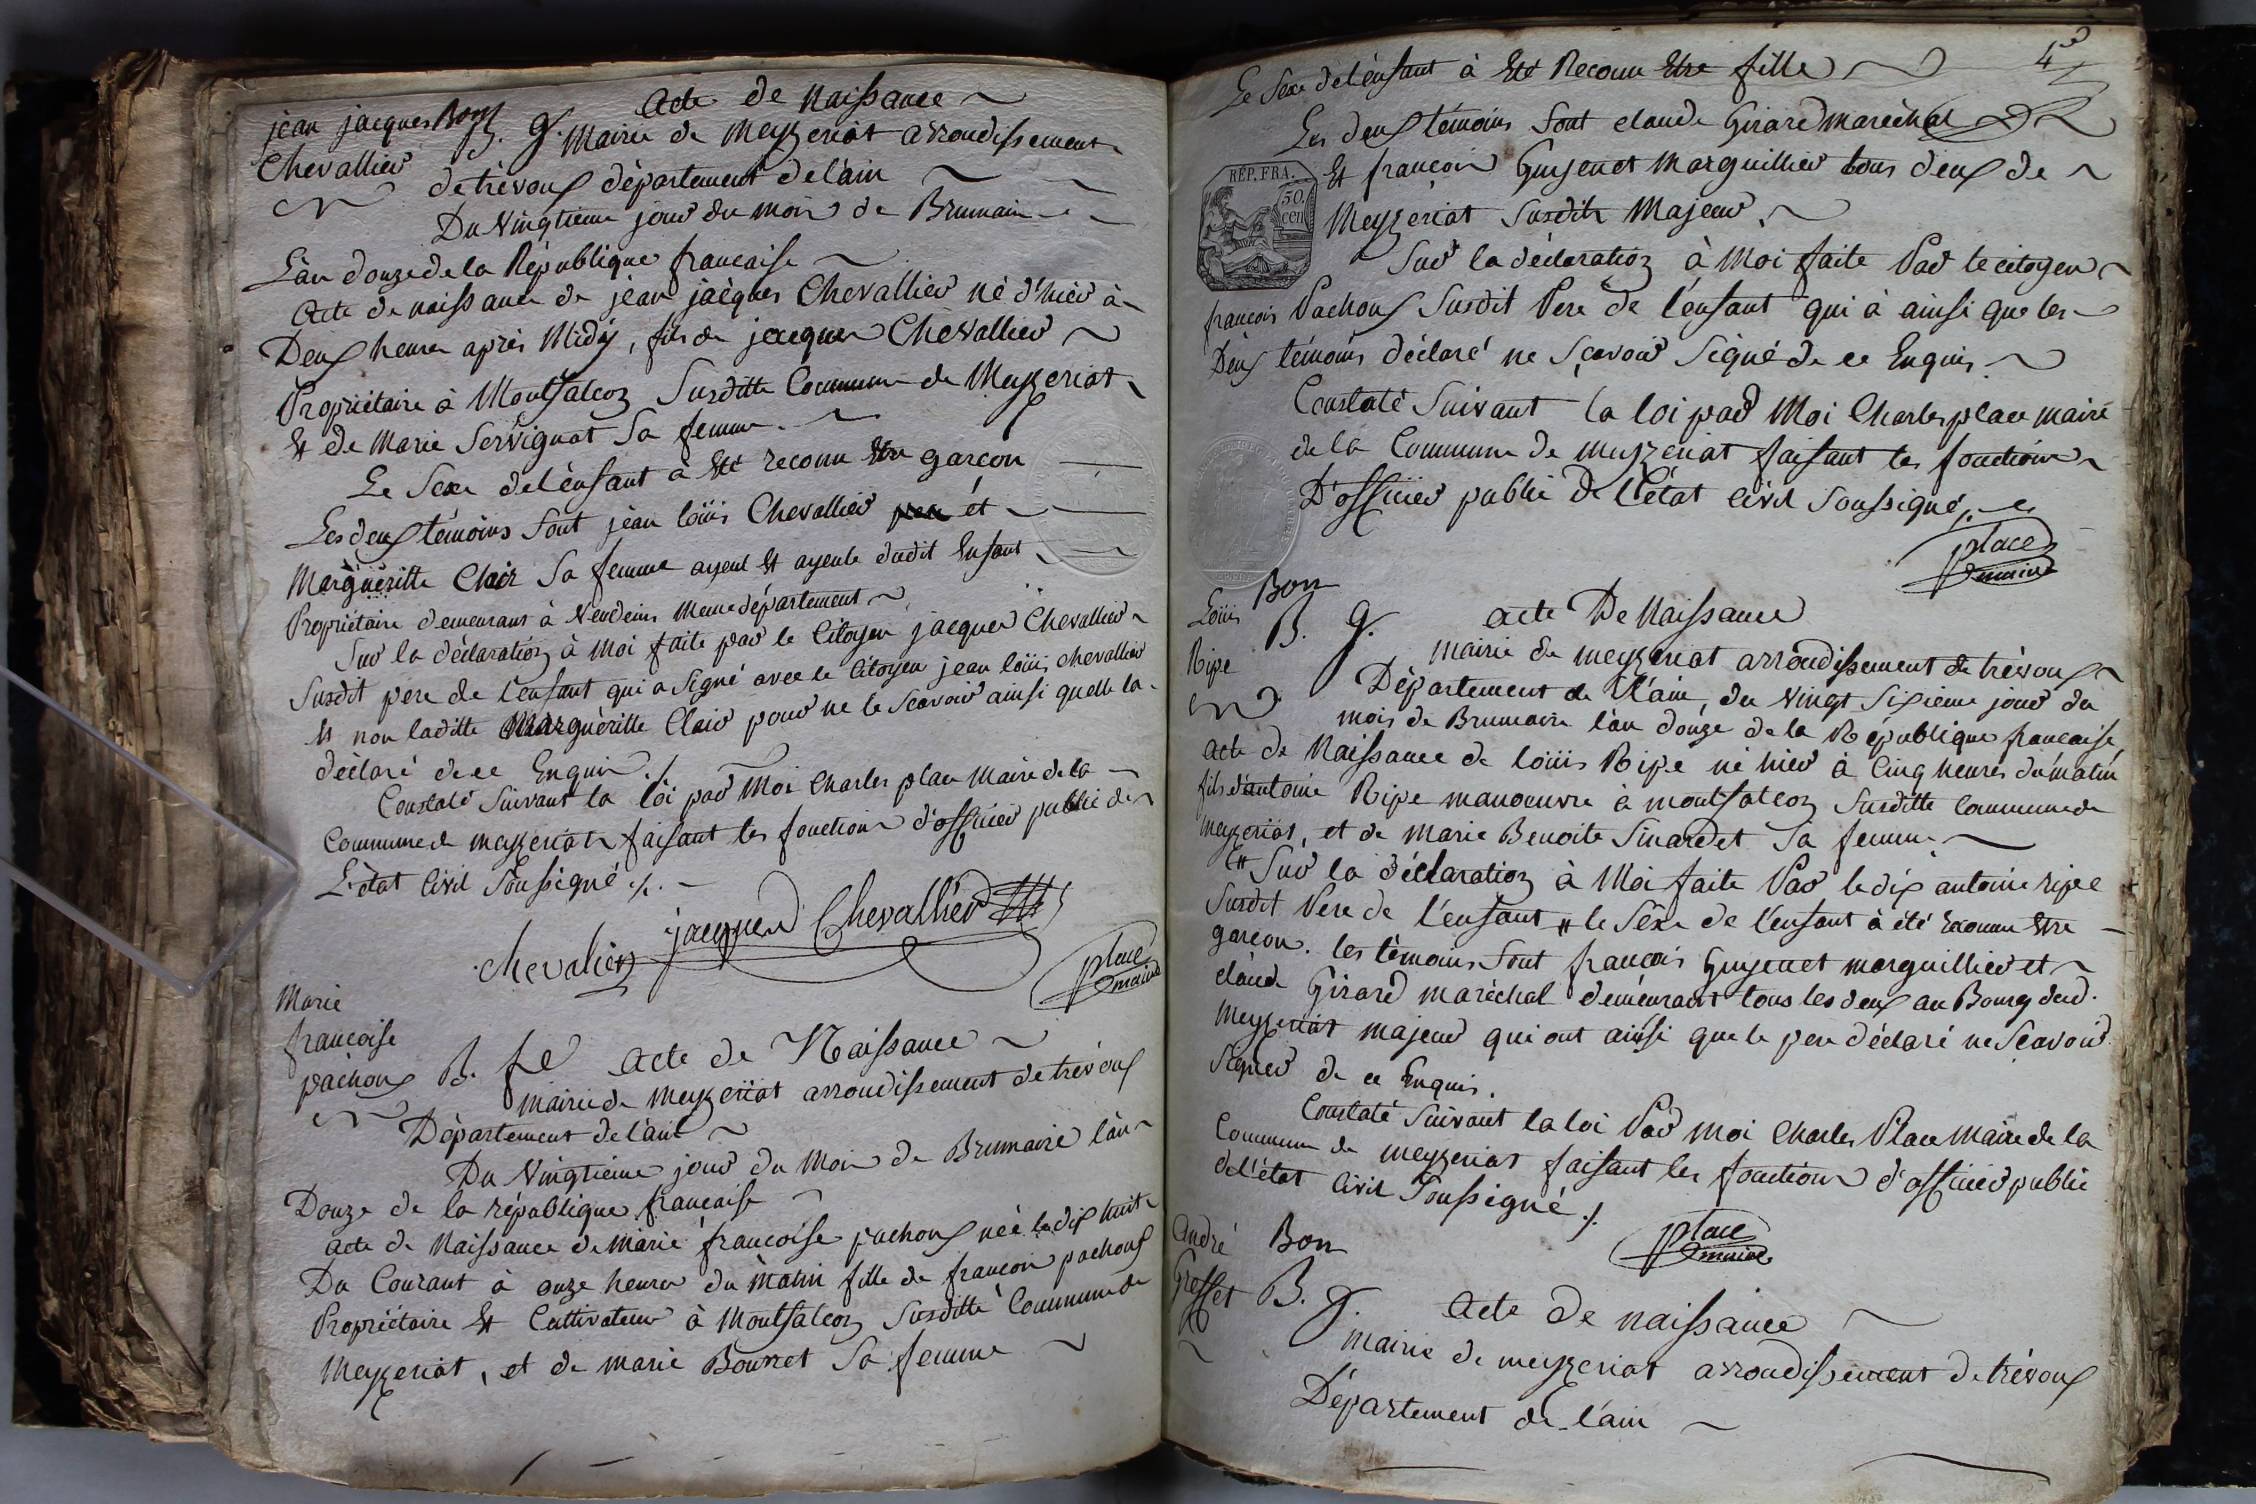 jean jacques Bon
Chevallier
B. g.
Acte de Naissance
Mairie de Meyzeriat arrondissement
de trévoux département de l'ain
Du Vingtieme jour du mois de Brumaire
L'an douze de la République francaise
Acte de naissance de jean jacques Chevallier né d'hier à
Deux heures aprés Midy, fils de jacques Chevallier
Propriétaire à Montfalcon Susditte Commune de Meyzeriat
Et de Marie Servignat Sa femme.
Le Sexe de l'enfant à Eté reconu Etre garçon
Les deux témoins Sont jean loüis Chevallier pere et
Margueritte Clair Sa femme ayeul Et ayeule dudit Enfant
Propriétaire demeurans à Vendeins Meme département
Sur la déclaration à Moi faite par le Citoyen jacques Chevallier
Susdit pere de l'enfant qui a Signé avec le Citoyen jean loüis chevallier
Et non laditte Margueritte Clair pour ne le Scavoir ainsi quelle la
déclaré de ce Enquis ./.
Constaté Suivant la loi par Moi Charles place Maire de la
Commune de meyzeriat faisant les fonctions d'officier public de
L'état Civil Soussigné ./.
chevalier jacques Chevallier
place
maire
Marie
francoise
pachoux
B. fe
Acte de Naissance
mairie de meyzeriat arrondissement de trévoux
Département de l'ain
Du Vingtieme jour du Mois de Brumaire l'an
Douze de la république francaise
Acte de Naissance de marie francoise pachoux née le dix huit
Du Courant à onze heures du matin fille de francois pachoux
Propriétaire Et Cultivateur à Montfalcon Susditte Commune de
Meyzeriat, et de marie Bourret Sa femme
43
Le Sexe de l'enfant à Eté Reconu Etre fille
Les deux témoins Sont claude Girard maréchal
RÉP. FRA.
50.
cen
Et francois Guyenet Marguillier tous deux de
Meyzeriat Susdits Majeur.
Sur la déclaration à Moi faite Par le citoyen
francois Pachoux Susdit Pere de l'enfant qui à ainsi que les
Deux témoins déclaré ne Sçavoir Signé de ce Enquis
Constaté Suivant la loi par Moi Charles place maire
de la Commune de meyzeriat faisant les fonctions
D'officier public de L'état Civil Soussigné ./.
place
maire
Loüis
Ripe
Bon
B. g.
Acte De Naissance
mairie de meyzeriat arrondissement de trévoux
Département de l'ain, du Vingt Sixieme jour du
mois de Brumaire l'an douze de la République francaise
Acte de Naissance de loüis Ripe né hier à Cinq heures du matin
fils d'antoine Ripe manoeuvre à montfalcon Susditte Commune de
meyzeriat, et de marie Benoite Sinardet Sa femme
Sur la déclaration à Moi faite Par ledix antoine ripe
Susdit Pere de l'enfant le Sèxe de l'enfant à été reconu Etre
garcon. les témoins Sont francois Guyenet marguillier et
claude Girard maréchal demeurant tous les deux au Bourg dud.
Meyzeriat majeur qui ont ainsi que le pere déclaré ne Scavoir
Signer de ce Enquis.
Constaté Suivant la loi Par Moi Charles Place Maire de la
Commune de meyzeriat faisant les fonctions d'officier public
de l'état Civil Soussigné ./.
place
maire
André
Gresset
Bon
B. g.
Acte de naissance
Mairie de meyzeriat arrondissement de trévoux
Département de l'ain